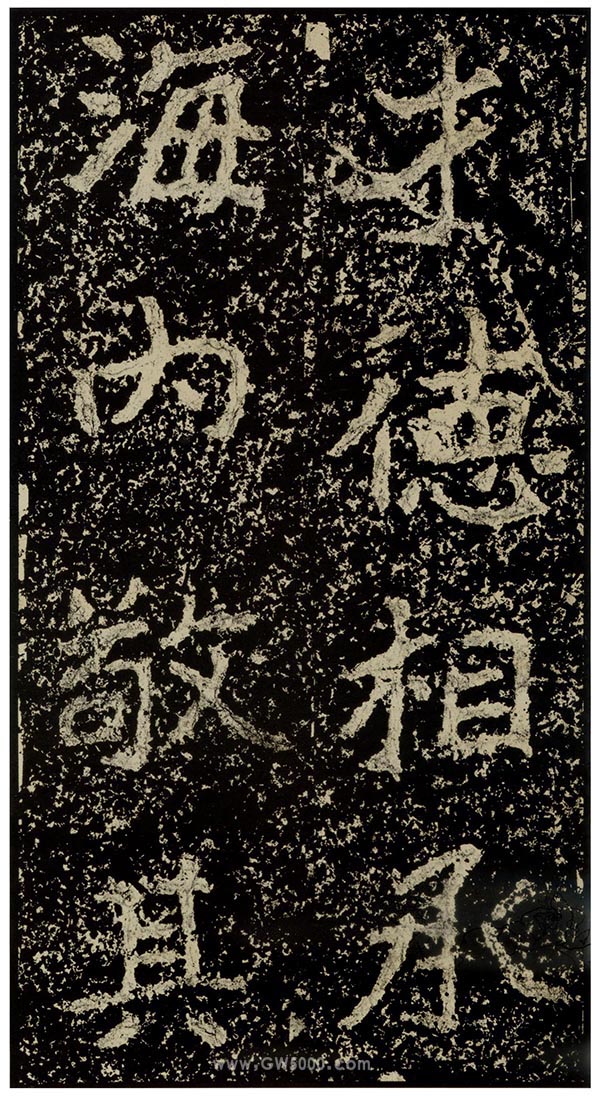 才德相承
海内敬其
www.GW5000.com